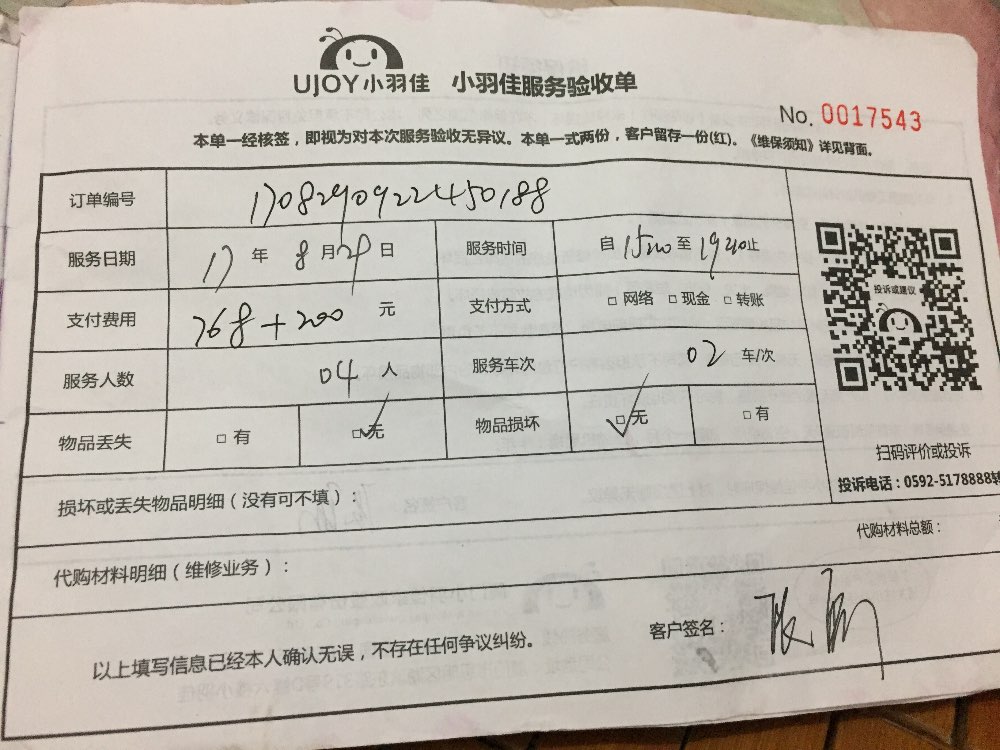 UJOY小羽佳 小羽佳服务验收单
No. 0017543
本单一经核签，即视为对本次服务验收无异议。本单一式两份，客户留存一份(红)。《维保须知》详见背面。
订单编号 1708290922450188
服务日期 17 年 8 月 29 日 服务时间 自 1500 至 1940 止
支付费用 768+200 元 支付方式 □ 网络 □ 现金 □ 转账
服务人数 04 人 服务车次 02 车/次
物品丢失 □ 有 □ 无 物品损坏 □ 无 □ 有
投诉或建议
扫码评价或投诉
投诉电话：0592-5178888转
损坏或丢失物品明细（没有可不填）：
代购材料总额：
代购材料明细（维修业务）：
以上填写信息已经本人确认无误，不存在任何争议纠纷。
客户签名：